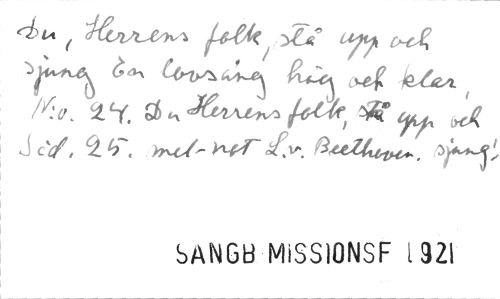 Du, Herrens folk, stå upp och
sjung En lovsång hög och klar,
N:o. 24. Du Herrens folk, stå upp och
Sid. 25. mel-not L.v. Beethoven. sjung!
SANGB MISSIONSF 1921